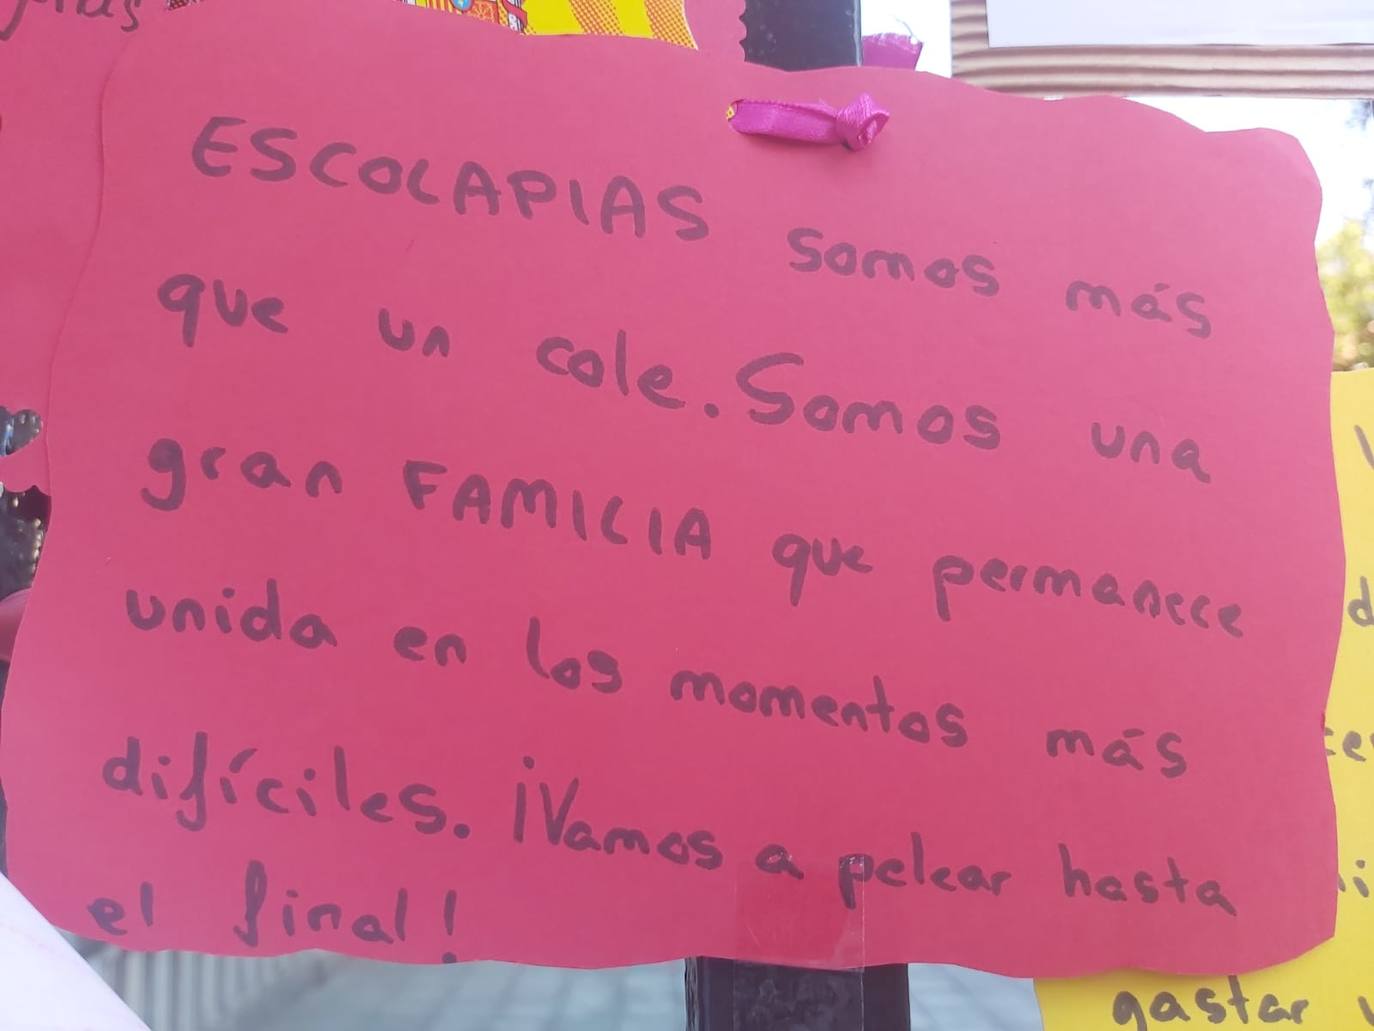 ESCOLAPIAS somos más
que un cole. Somos una
gran FAMILIA que permanece
unida en los momentos más
difíciles. ¡Vamos a pelear hasta
el final!
gastar